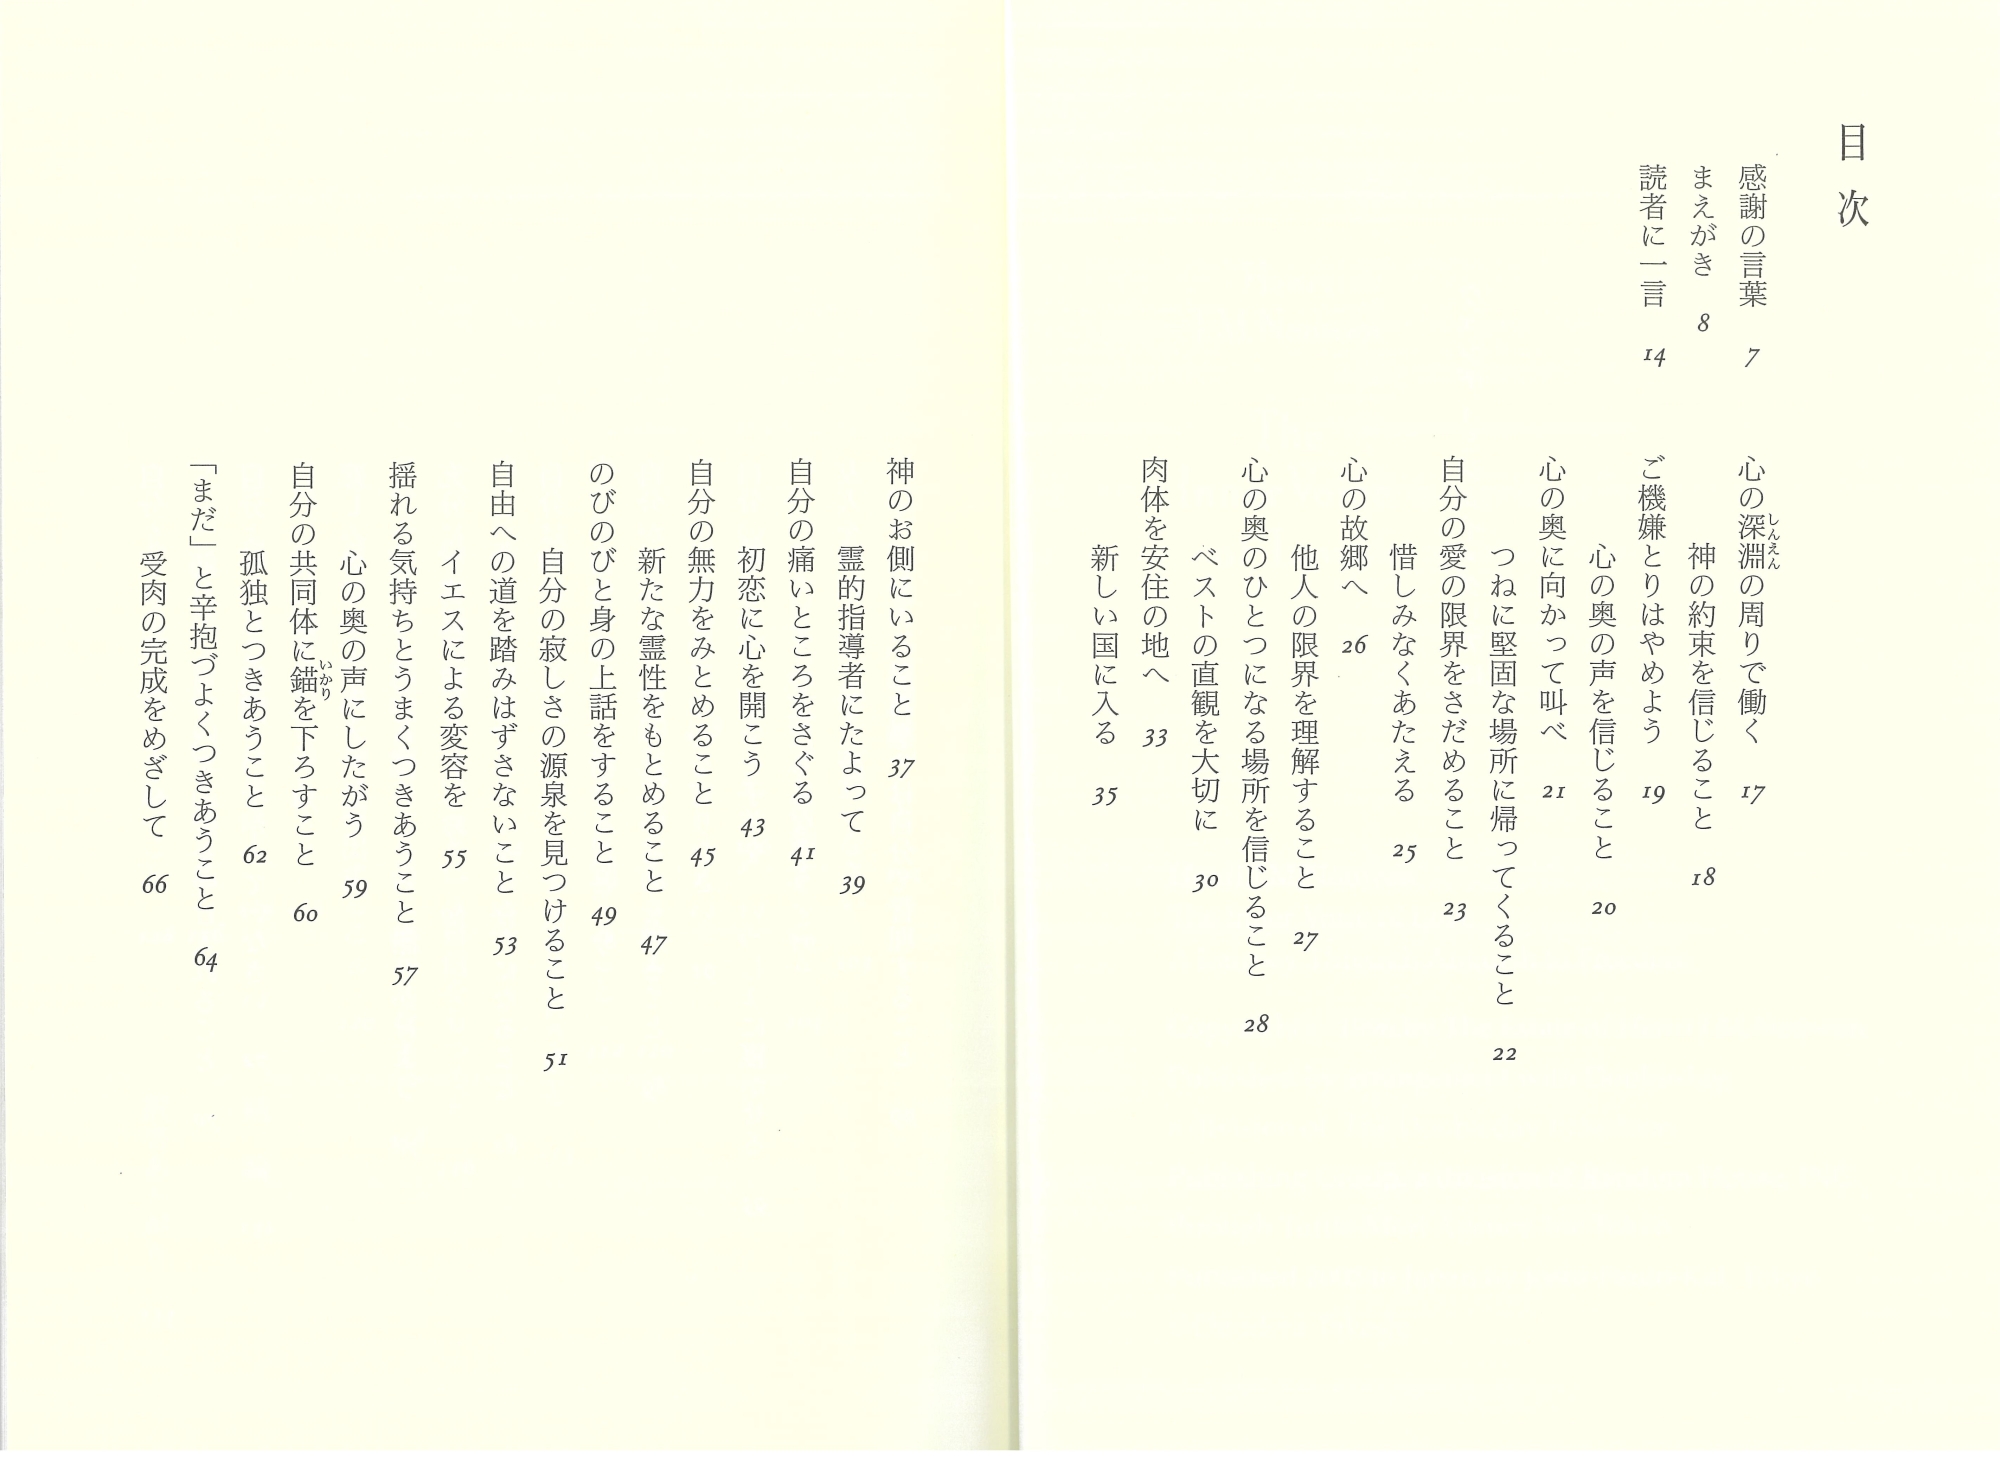 目次
感謝の言葉 7
まえがき 8
読者に一言 14
心の深淵の周りで働く 17
しんえん
神の約束を信じること 18
ご機嫌とりはやめよう 19
心の奥の声を信じること 20
心の奥に向かって叫べ 21
つねに堅固な場所に帰ってくること 22
自分の愛の限界をさだめること 23
惜しみなくあたえる 25
心の故郷へ 26
他人の限界を理解すること 27
心の奥のひとつになる場所を信じること 28
ベストの直観を大切に 30
肉体を安住の地へ 33
新しい国に入る 35
神のお側にいること 37
霊的指導者にたよって 39
自分の痛いところをさぐる 41
初恋に心を開こう 43
自分の無力をみとめること 45
新たな霊性をもとめること 47
のびのびと身の上話をすること 49
自分の寂しさの源泉を見つけること 51
自由への道を踏みはずさないこと 53
イエスによる変容を 55
揺れる気持ちとうまくつきあうこと 57
心の奥の声にしたがう 59
自分の共同体に錨を下ろすこと 60
いかり
孤独とつきあうこと 62
「まだ」と辛抱づよくつきあうこと 64
受肉の完成をめざして 66